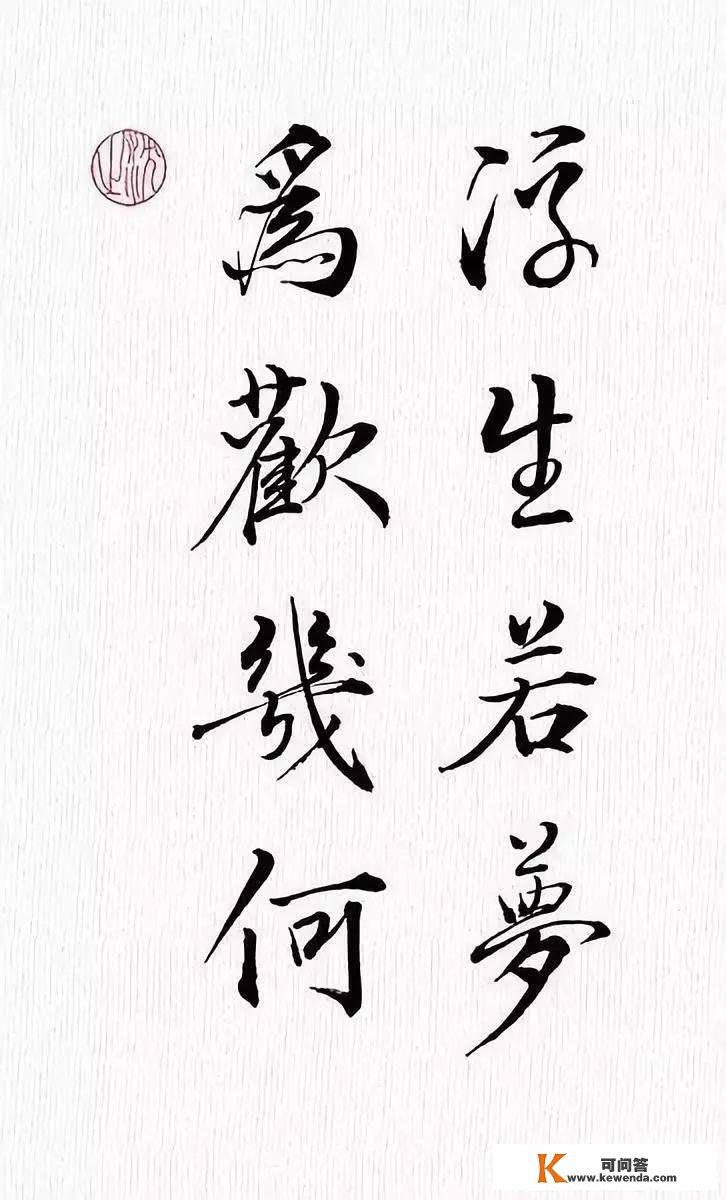 浮生若夢
為歡幾何
可问答
www.kewenda.com